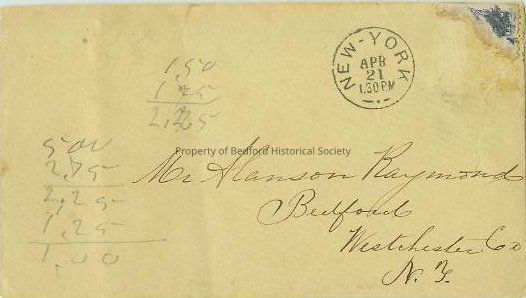 NEW-YORK
APR
21
1.30 PM
1,50
2,25
Property of Bedford Historical Society
5,00
2,75
2,25
1,25
1,00
Mr Alanson Raymond
Bedford
Westchester Co
N. Y.